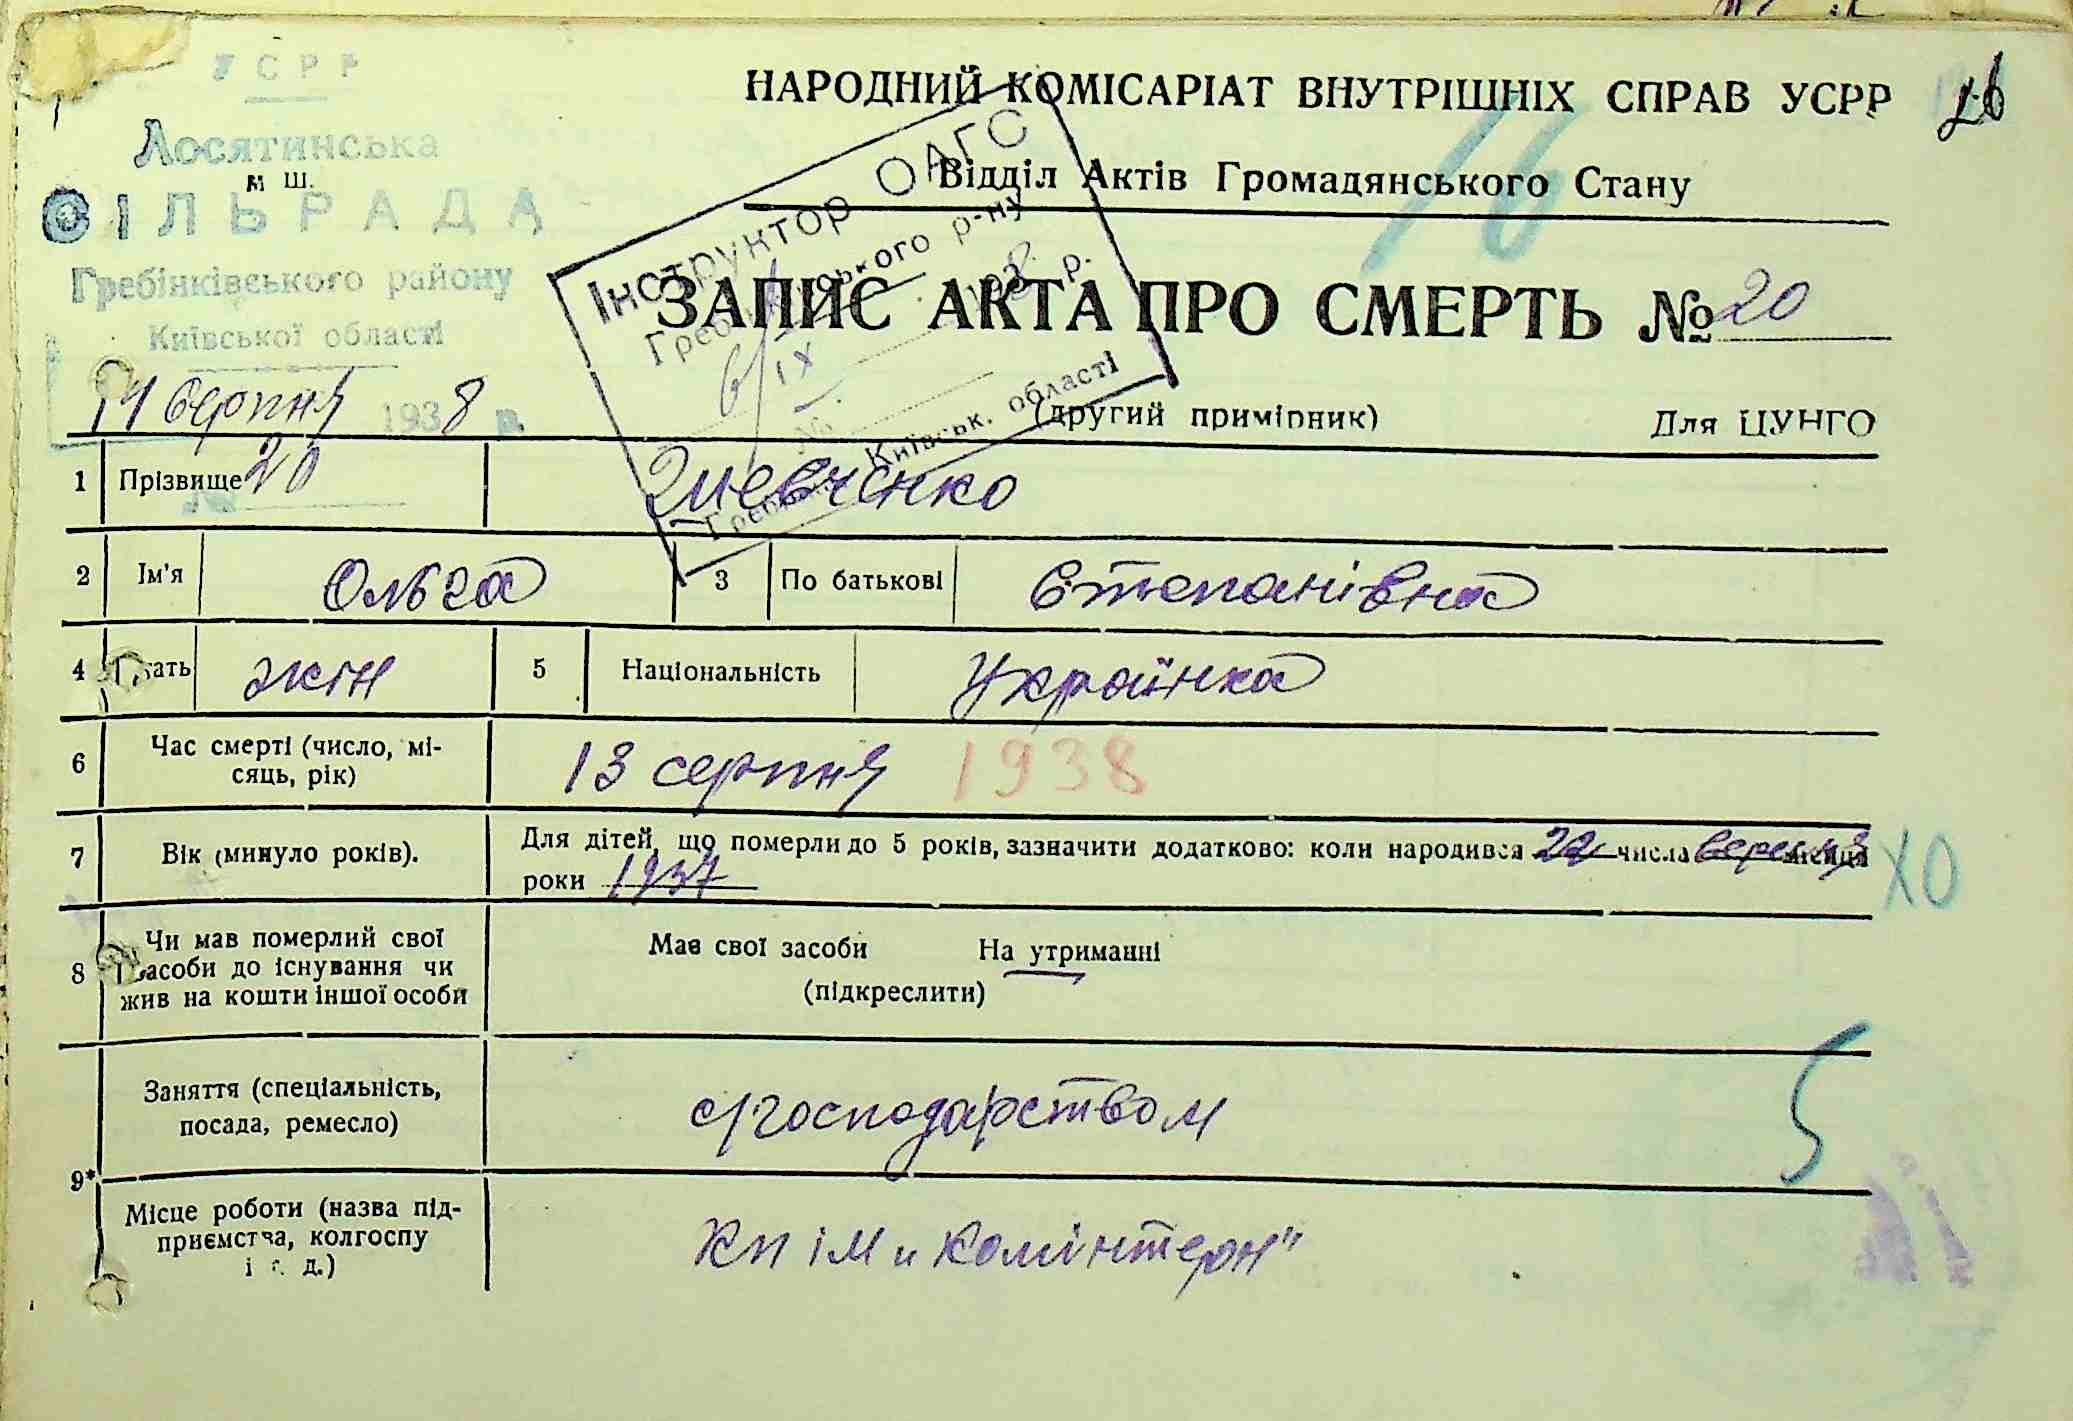 УСРР
Лосятинська
м ш.
СІЛЬРАДА
Гребінківського району
Київської області
14 серпня 1938 р.
№ 20
НАРОДНИЙ КОМІСАРІАТ ВНУТРІШНІХ СПРАВ УСРР
26
16
Відділ Актів Громадянського Стану
Інструктор ОАГС
ського р-ну
6/IX 1938 р.
№
Київськ. області
ЗАПИС АКТА ПРО СМЕРТЬ № 20
(другий примірник) Для ЦУНГО
1 Прізвище Шевченко
2 Ім'я Ольга 3 По батькові Степанівна
4 жін 5 Національність Українка
6 Час смерті (число, мі-
сяць, рік)
13 серпня 1938
7 Вік (минуло років).
Для дітей, що померли до 5 років, зазначити додатково: коли народився 22 числа вересня місяця
роки 1937
ХО
8 Чи мав померлий свої
засоби до існування чи
жив на кошти іншої особи
Мав свої засоби На утриманні
(підкреслити)
9* Заняття (спеціальність,
посада, ремесло)
с/господарством
5
Місце роботи (назва під-
приємства, колгоспу
і т. д.)
Кп ім „Комінтерн"